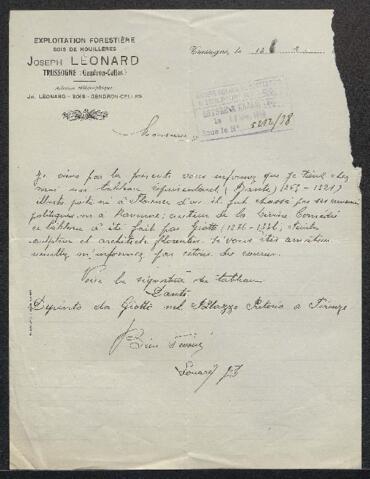 EXPLOITATION FORESTIÈRE
BOIS DE HOUILLÈRES
JOSEPH LÉONARD
TRUSSOGNE (Gendron-Celles)
Adresse télégraphique
JH. LÉONARD - BOIS - GENDRON-CELLES
Trussogne, le
5212/78
Monsieur
Je viens par la présente vous informer que je tiens chez
moi un tableau représentant (Dante) 1265 - 1321)
illustre poète né à Florence d'où il fut chassé par ses ennemis
politiques mort à Ravenne; auteur de la Divine Comédie
ce tableau a été fait par Giotto (1276 - 1336), peintre
sculpteur et architecte florentin. Si vous êtes amateur
veuillez m'informer par retour du courrier.
Voici la signature du tableau
Dante
Dipinto da Giotto nel Palazzo Pretorio a Firenze
Bien dévoué
Léonard Jh